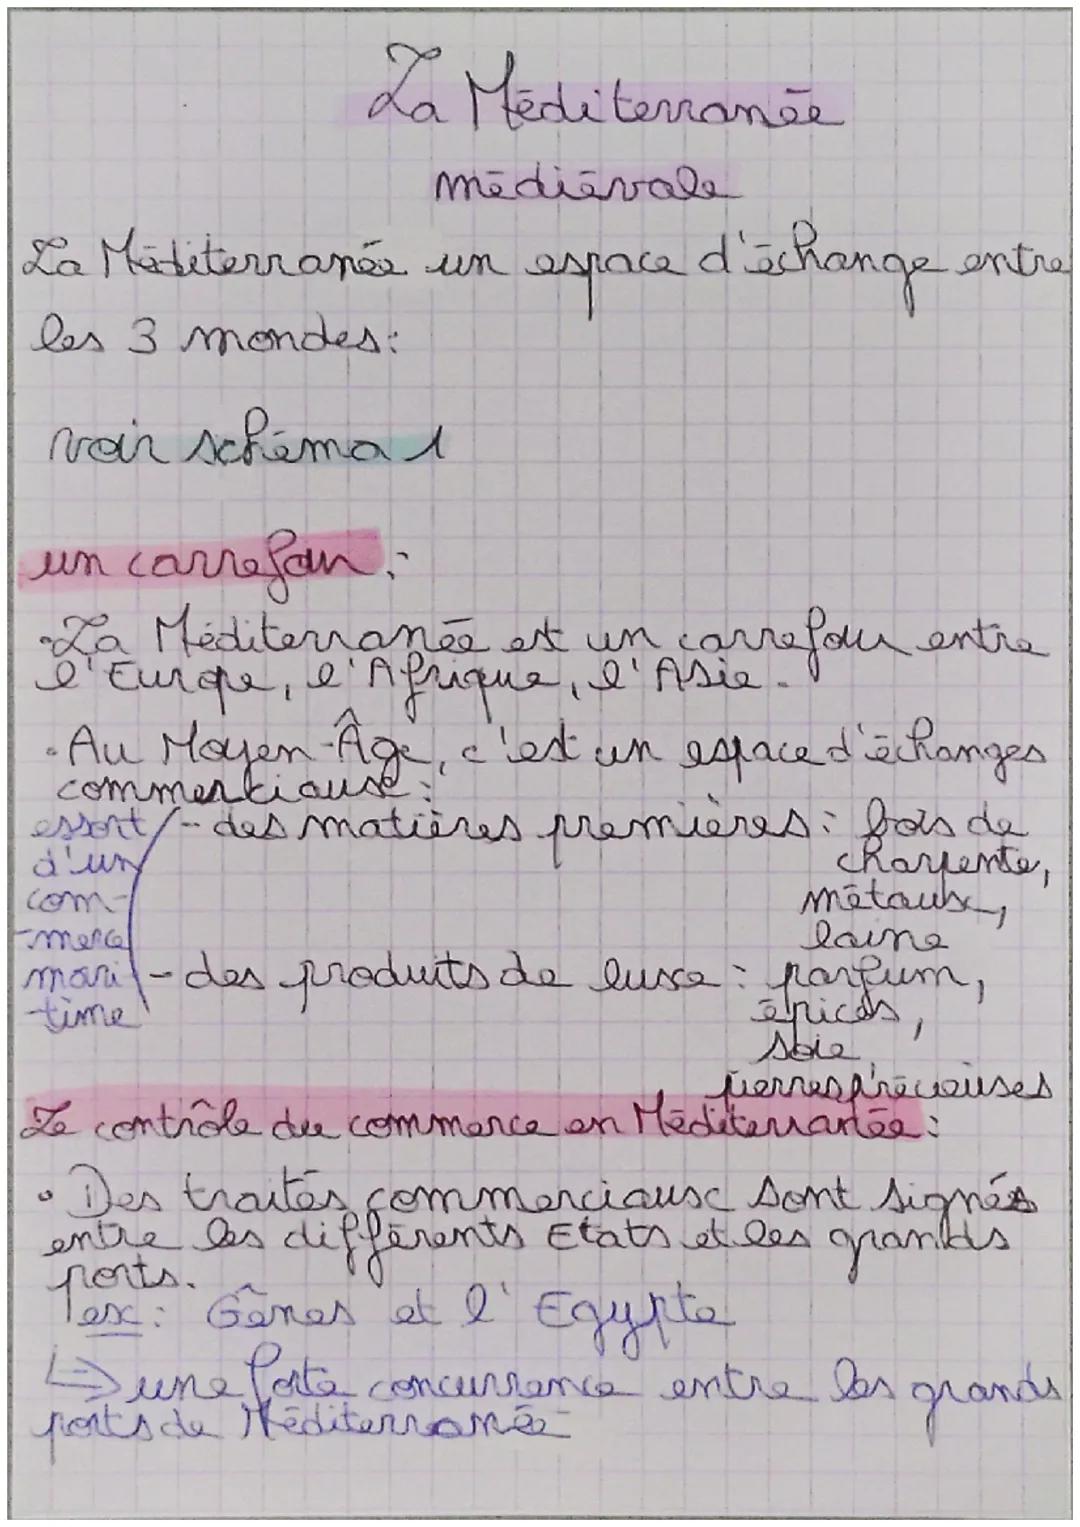 La Méditerranée
médiévale
La Méditerranée un espace d'échange entre
les 3 mondes:
voir schéma 1
un carrefour:
• La Méditerranée est un carrefour entre
l'Europe, l'Afrique, l'Asie.
• Au Moyen-Âge, c'est un espace d'échanges
commerciaux:
- des matières premières: bois de
charpente,
métaux,
laine
- des produits de luxe: parfum,
épices,
soie,
pierres précieuses
essort
d'un
com-
-merce
mari
-time
Le contrôle du commerce en Méditerranée:
• Des traités commerciaux sont signés
entre les différents Etats et les grands
ports.
ex: Gênes et l'Egypte
↳ une forte concurrence entre les grands
ports de Méditerranée